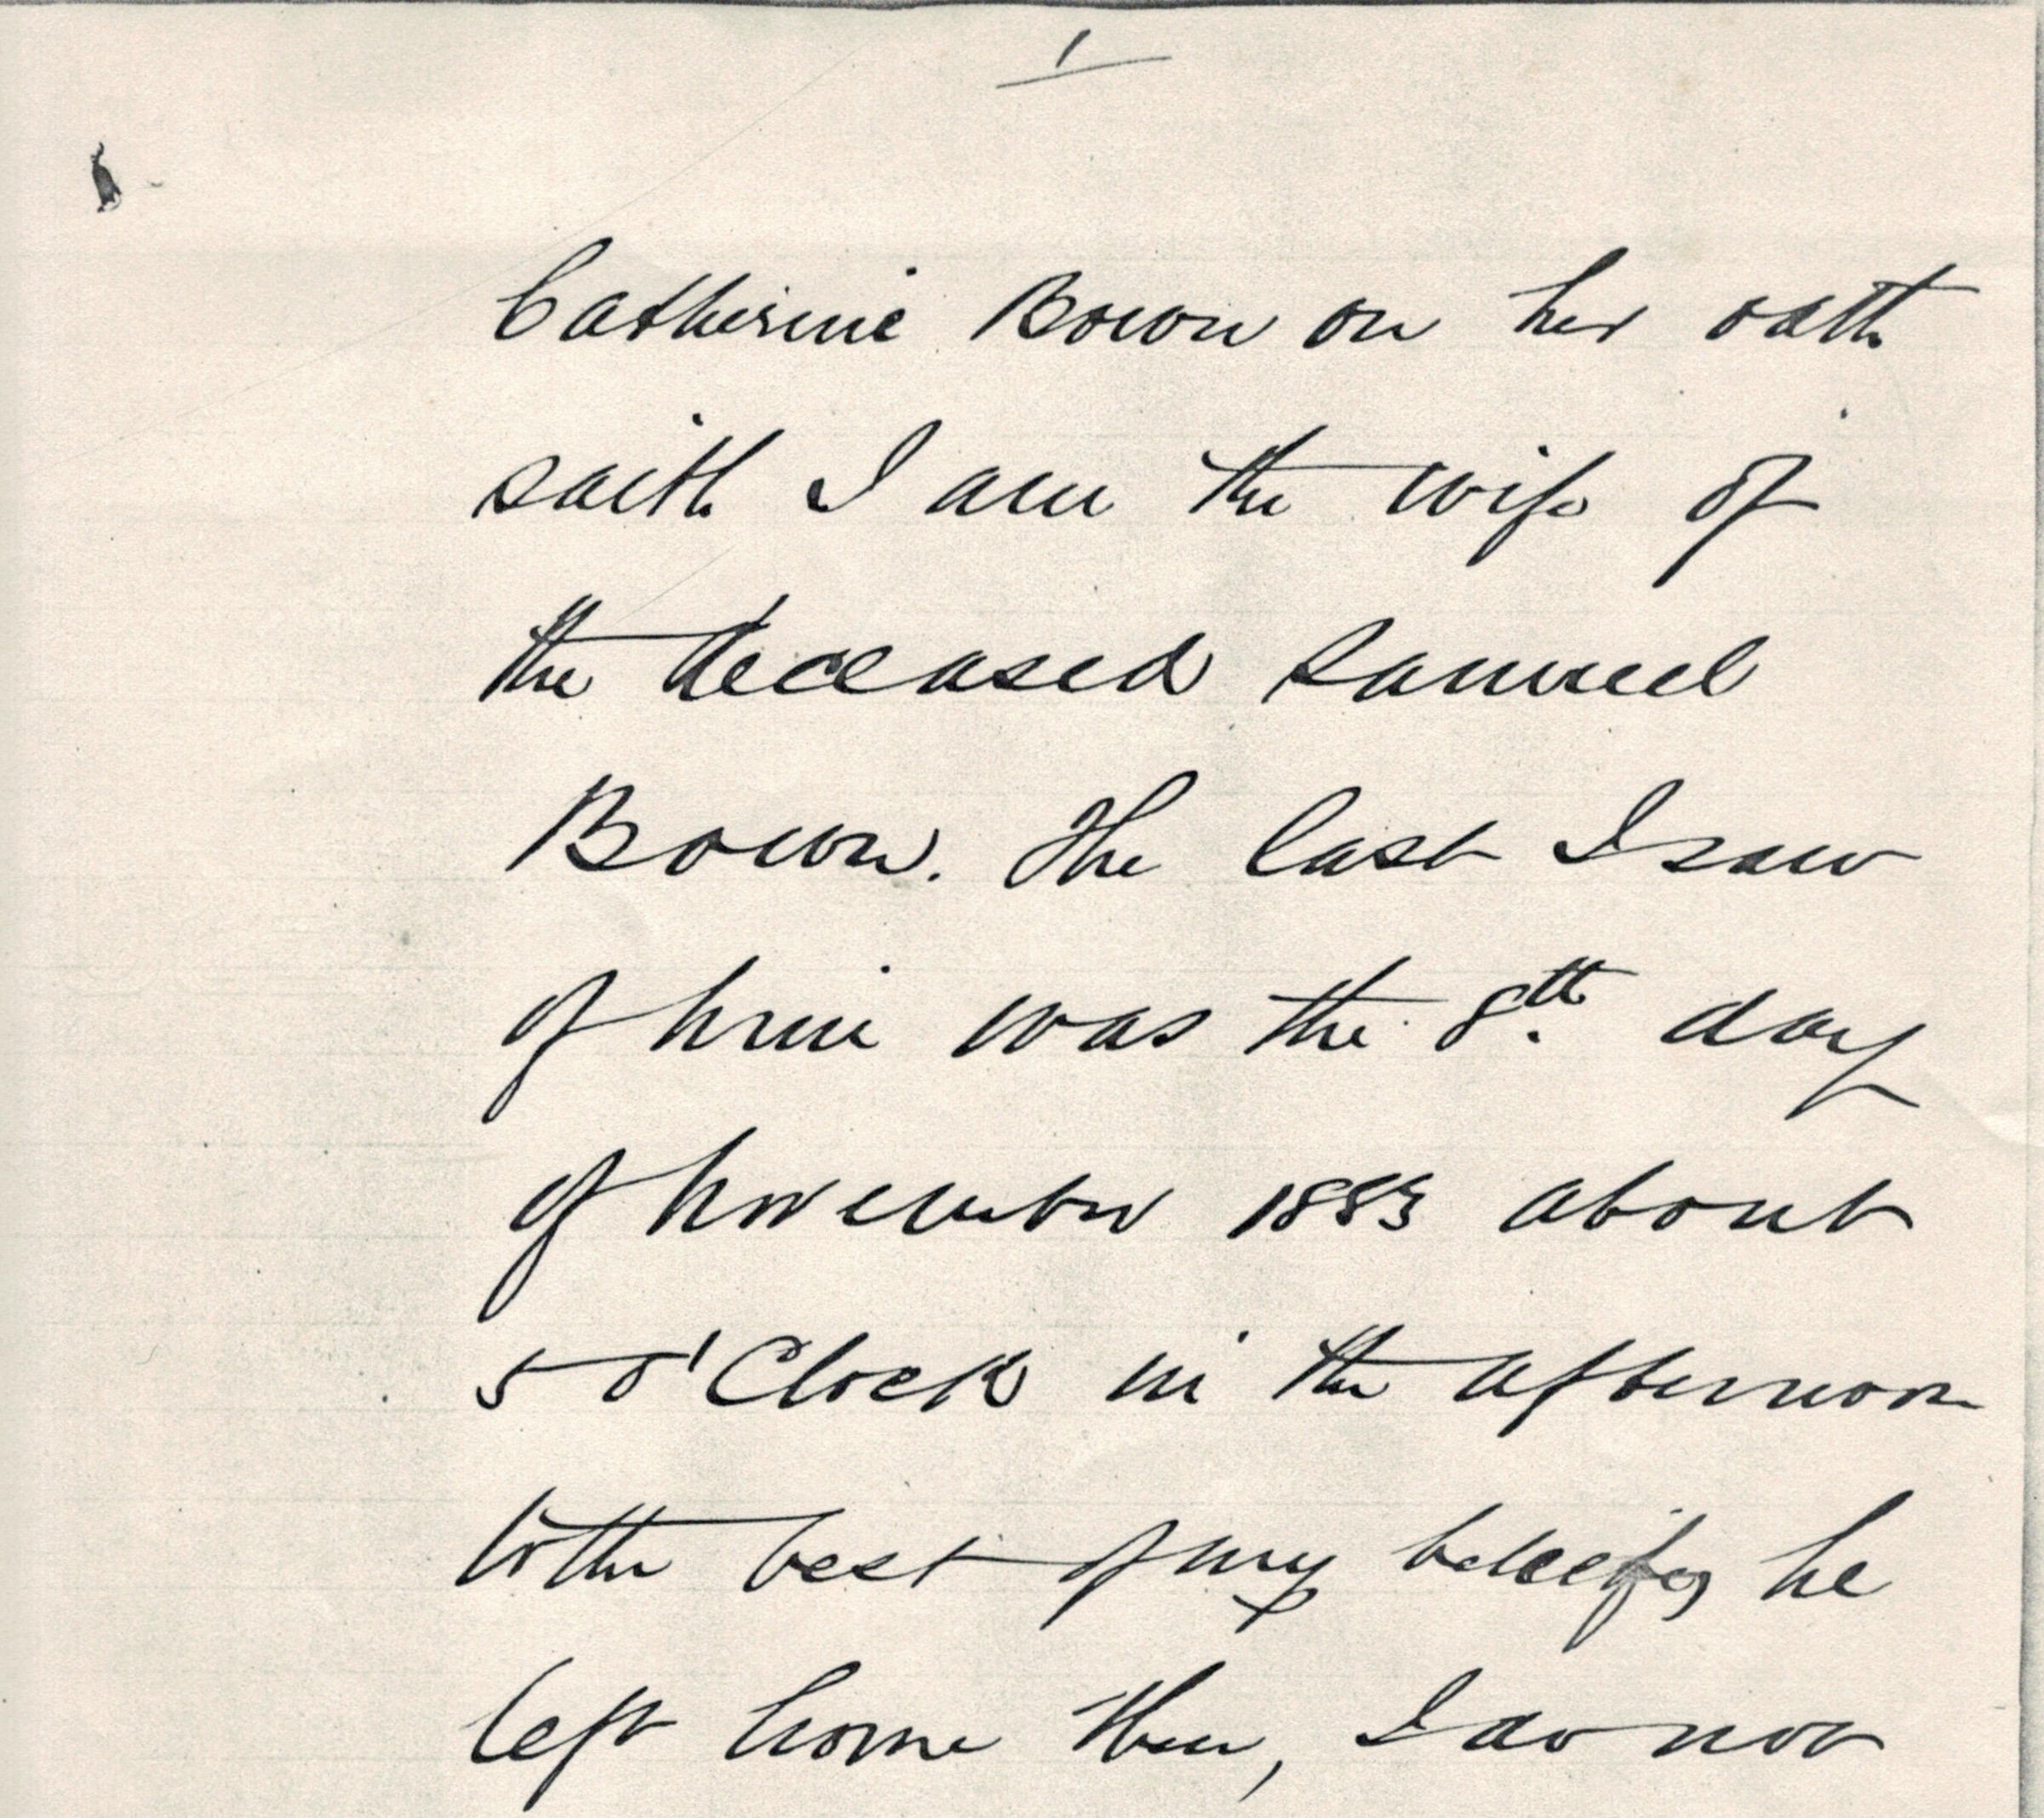 1
Catherine Bown on her oath
saith I am the wife of
the deceased Samuel
Bown. The last I saw
of him was the 8th day
of November 1883 about
5 O'Clock in the afternoon
to the best of my beleef, he
left home then, I do not